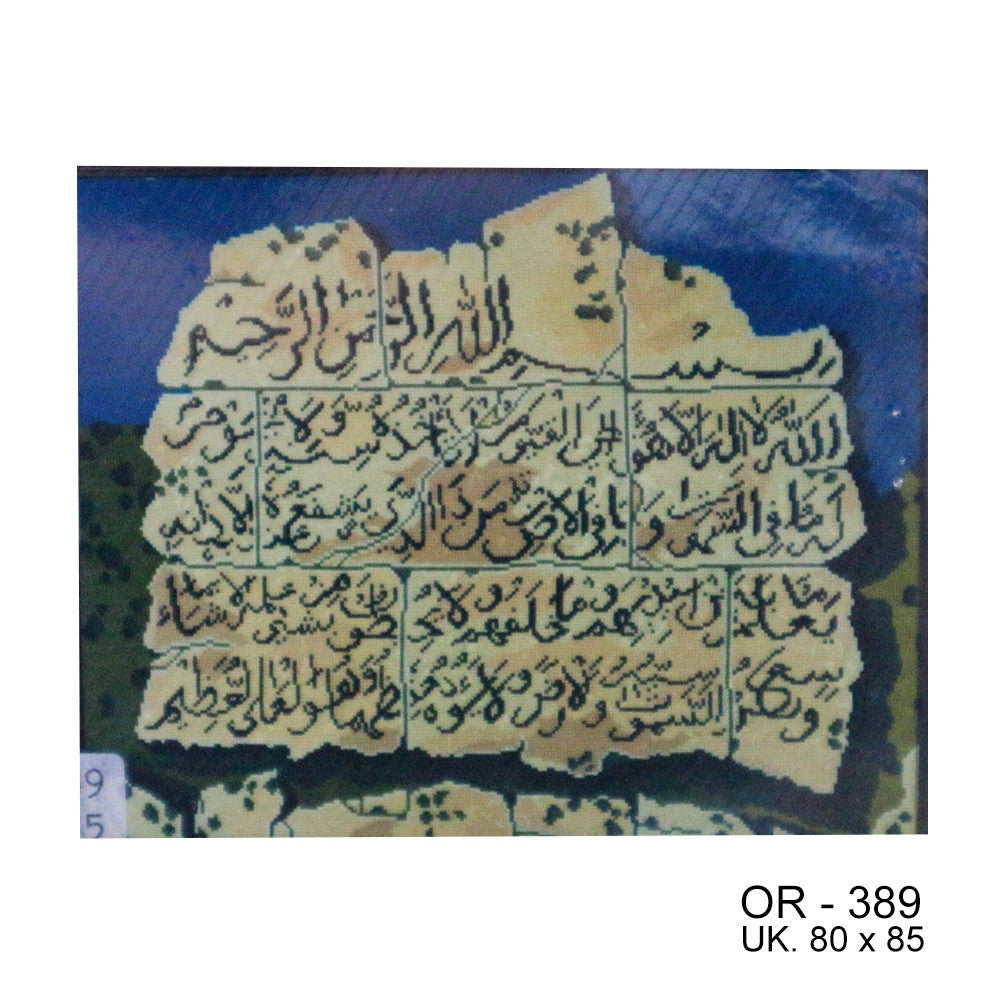 بسم الله الرحمن الرحيم
الله لا اله الا هو الحي القيوم لا تأخذه سنة ولا نوم
له ما في السموات وما في الارض من ذا الذي يشفع عنده الا باذنه
يعلم ما بين ايديهم وما خلفهم ولا يحيطون بشيء من علمه الا بما شاء
وسع كرسيه السموات والارض ولا يؤده حفظهما وهو العلي العظيم
9
5
OR - 389
UK. 80 x 85